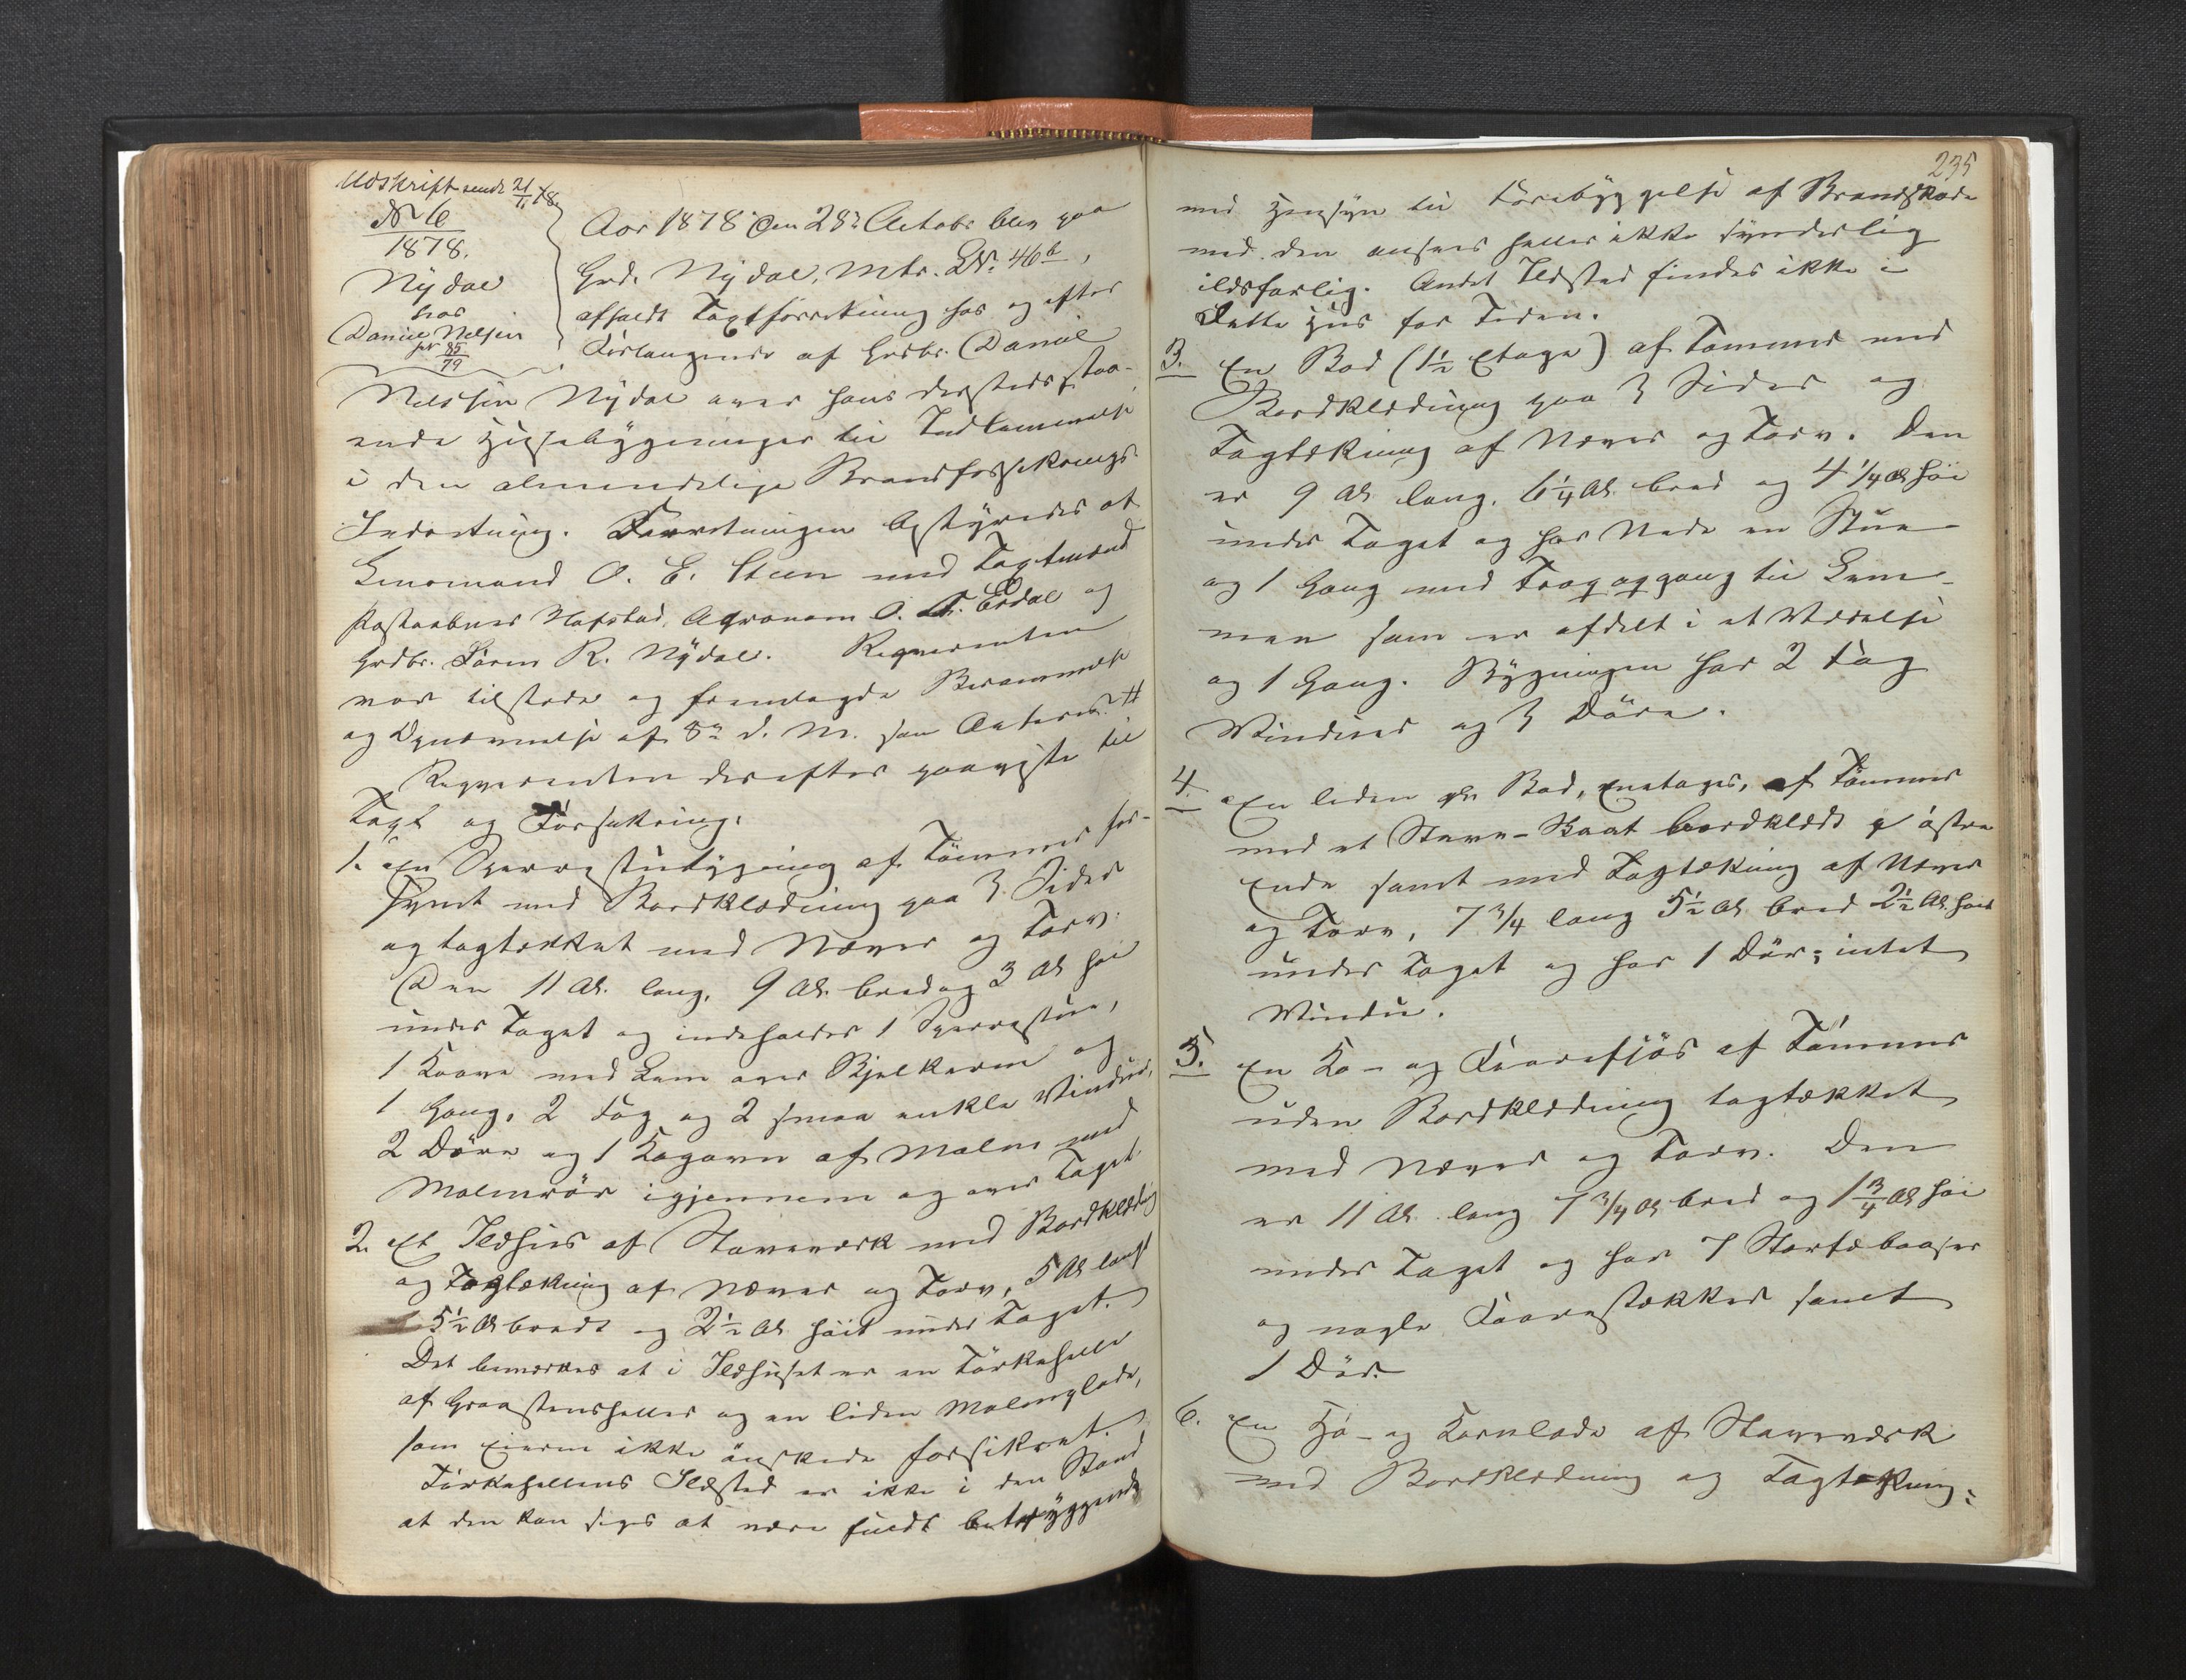 Udskrift sendt 21/11 78
No 6
1878.
Nydal
hos
Daniel Nelsen
85
79
Aar 1878 den 28de Octobr blev paa
Grd. Nydal, Mtr. LN. 46b,
afholdt Taxtforretning hos og efter
Forlangende af Grdbr. Daniel
Nelsen Nydal over hans dersteds staa-
ende Husebygninger til Indlemmelse
i den almindelige Brandforsikrings
Indretning. Forretningen bestyredes af
Lensmand O. E. Steen med Taxtmænd
Postaabner Hafstad, Agronom O. Erdal og
Grdbr. Søren R. Nydal. Reqvirenten
var tilstede og fremlagde Berammelse
og Opnævnelse af 8de d. M. som Acteres. #
Reqvirenten derefter paaviste til
Taxt og Forsikring:
1. En Sperrestubygning af Tømmer for-
synet med Bordklædning paa 3 Sider
og tagtækket med Næver og Torv.
Den 11 Al. lang, 9 Al. bred og 3 Al høi
under Taget og indeholder 1 Sperrestue,
1 Kaave med Lem over Bjelkerne og
1 Gang, 2 Fag og 2 smaa enkle Vinduer,
2 Døre og 1 Kogovn af Malm med
Malmrør igjennem og over Taget.
2. Et Ildhus af Staveværk med Bordklædning
og Tagtækning af Næver og Torv, 5 Al langt
5½ Al bredt og 2½ Al. høit under Taget.
Det bemærkes at i Ildhuset er en Tørkehelle
af Graastensheller og en liden Malmplade,
som Eieren ikke ønskede forsikret.
Tørkehellens Ildsted er ikke i den Stand
at den kan siges at være fuldt betryggende
235
med Hensyn til Forebyggelse af Brandskade
med den ansees heller ikke synderlig
ildsfarlig. Andet Ildsted findes ikke i
dette Hus for Tiden.
3. En Bod (1½ Etage) af Tømmer med
Bordklædning paa 3 Sider og
Tagtækning af Næver og Torv. Den
er 9 Al. lang, 6¼ Al. bred og 4¼ Al høi
under Taget og har Nede en Stue
og 1 Gang med Trapopgang til Lem-
men som er afdelt i et Værelse
og 1 Gang. Bygningen har 2 Fag
Vinduer og 3 Døre.
4. En liden gl. Bod, Enetages, af Tømmer
med et Stave-Skaat bordklædt i østre
Ende samt med Tagtækning af Næver
og Torv, 7¾ lang 5½ Al. bred 2½ Al. høi
under Taget og har 1 Dør; intet
Vindu.
5. En Ko- og Faarefjøs af Tømmer
uden Bordklædning tagtækket
med Næver og Torv. Den
er 11 Al. lang 7¾ Al. bred og 1¾ Al høi
under Taget og har 7 Storfæbaaser
og nogle Faarestækker samt
1 Dør.
6. En Hø- og Kornlade af Staveværk
med Bordklædning og Tagtækning: